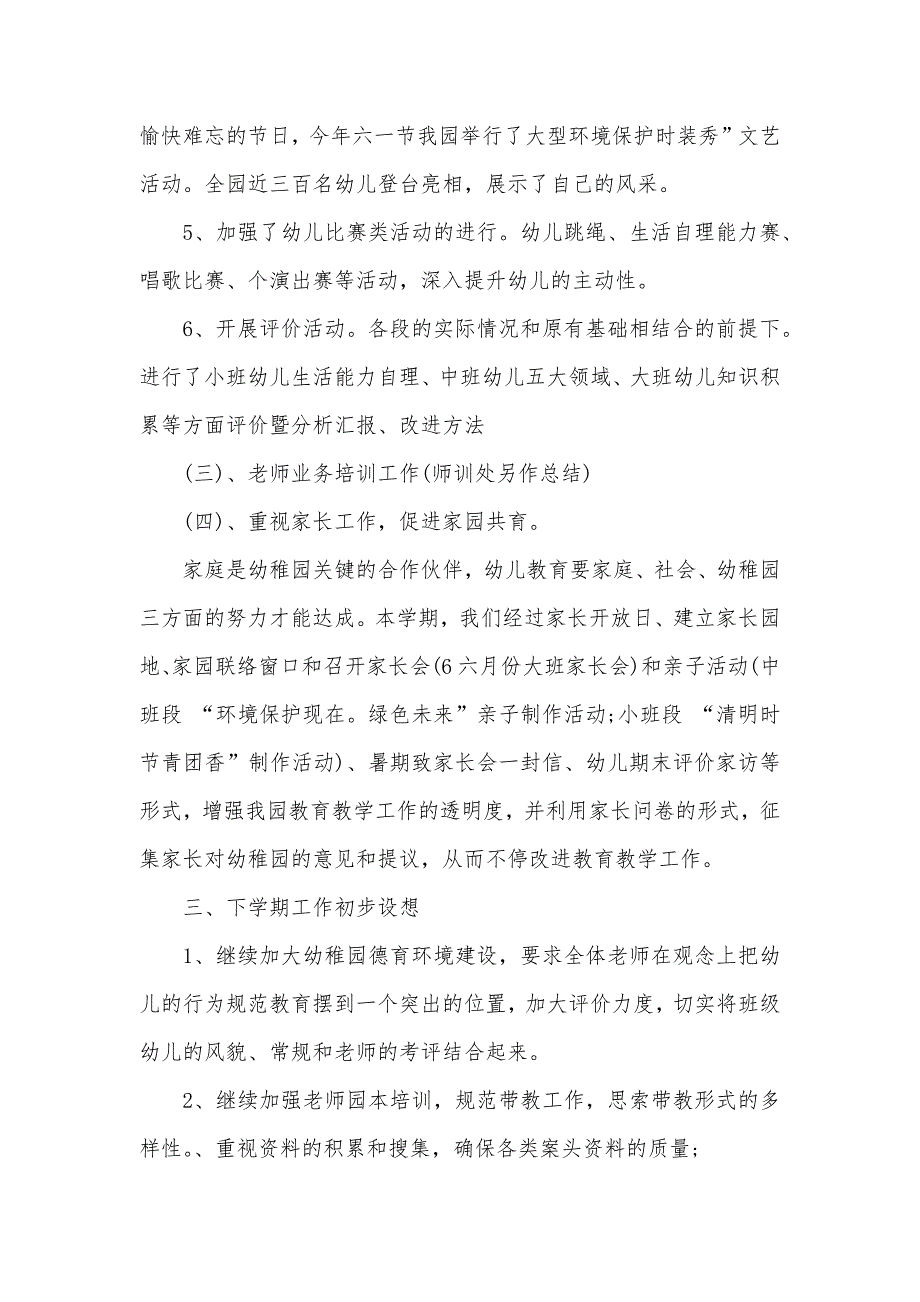 愉快难忘的节日，今年六一节我园举行了大型环境保护时装秀”文艺
活动。全园近三百名幼儿登台亮相，展示了自己的风采。
5、加强了幼儿比赛类活动的进行。幼儿跳绳、生活自理能力赛、
唱歌比赛、个演出赛等活动，深入提升幼儿的主动性。
6、开展评价活动。各段的实际情况和原有基础相结合的前提下。
进行了小班幼儿生活能力自理、中班幼儿五大领域、大班幼儿知识积
累等方面评价暨分析汇报、改进方法
(三)、老师业务培训工作(师训处另作总结)
(四)、重视家长工作，促进家园共育。
家庭是幼稚园关键的合作伙伴，幼儿教育要家庭、社会、幼稚园
三方面的努力才能达成。本学期，我们经过家长开放日、建立家长园
地、家园联络窗口和召开家长会(6 六月份大班家长会)和亲子活动(中
班段 “环境保护现在。绿色未来”亲子制作活动;小班段 “清明时
节青团香”制作活动)、暑期致家长会一封信、幼儿期末评价家访等
形式，增强我园教育教学工作的透明度，并利用家长问卷的形式，征
集家长对幼稚园的意见和提议，从而不停改进教育教学工作。
三、下学期工作初步设想
1、继续加大幼稚园德育环境建设，要求全体老师在观念上把幼
儿的行为规范教育摆到一个突出的位置，加大评价力度，切实将班级
幼儿的风貌、常规和老师的考评结合起来。
2、继续加强老师园本培训，规范带教工作，思索带教形式的多
样性。、重视资料的积累和搜集，确保各类案头资料的质量;